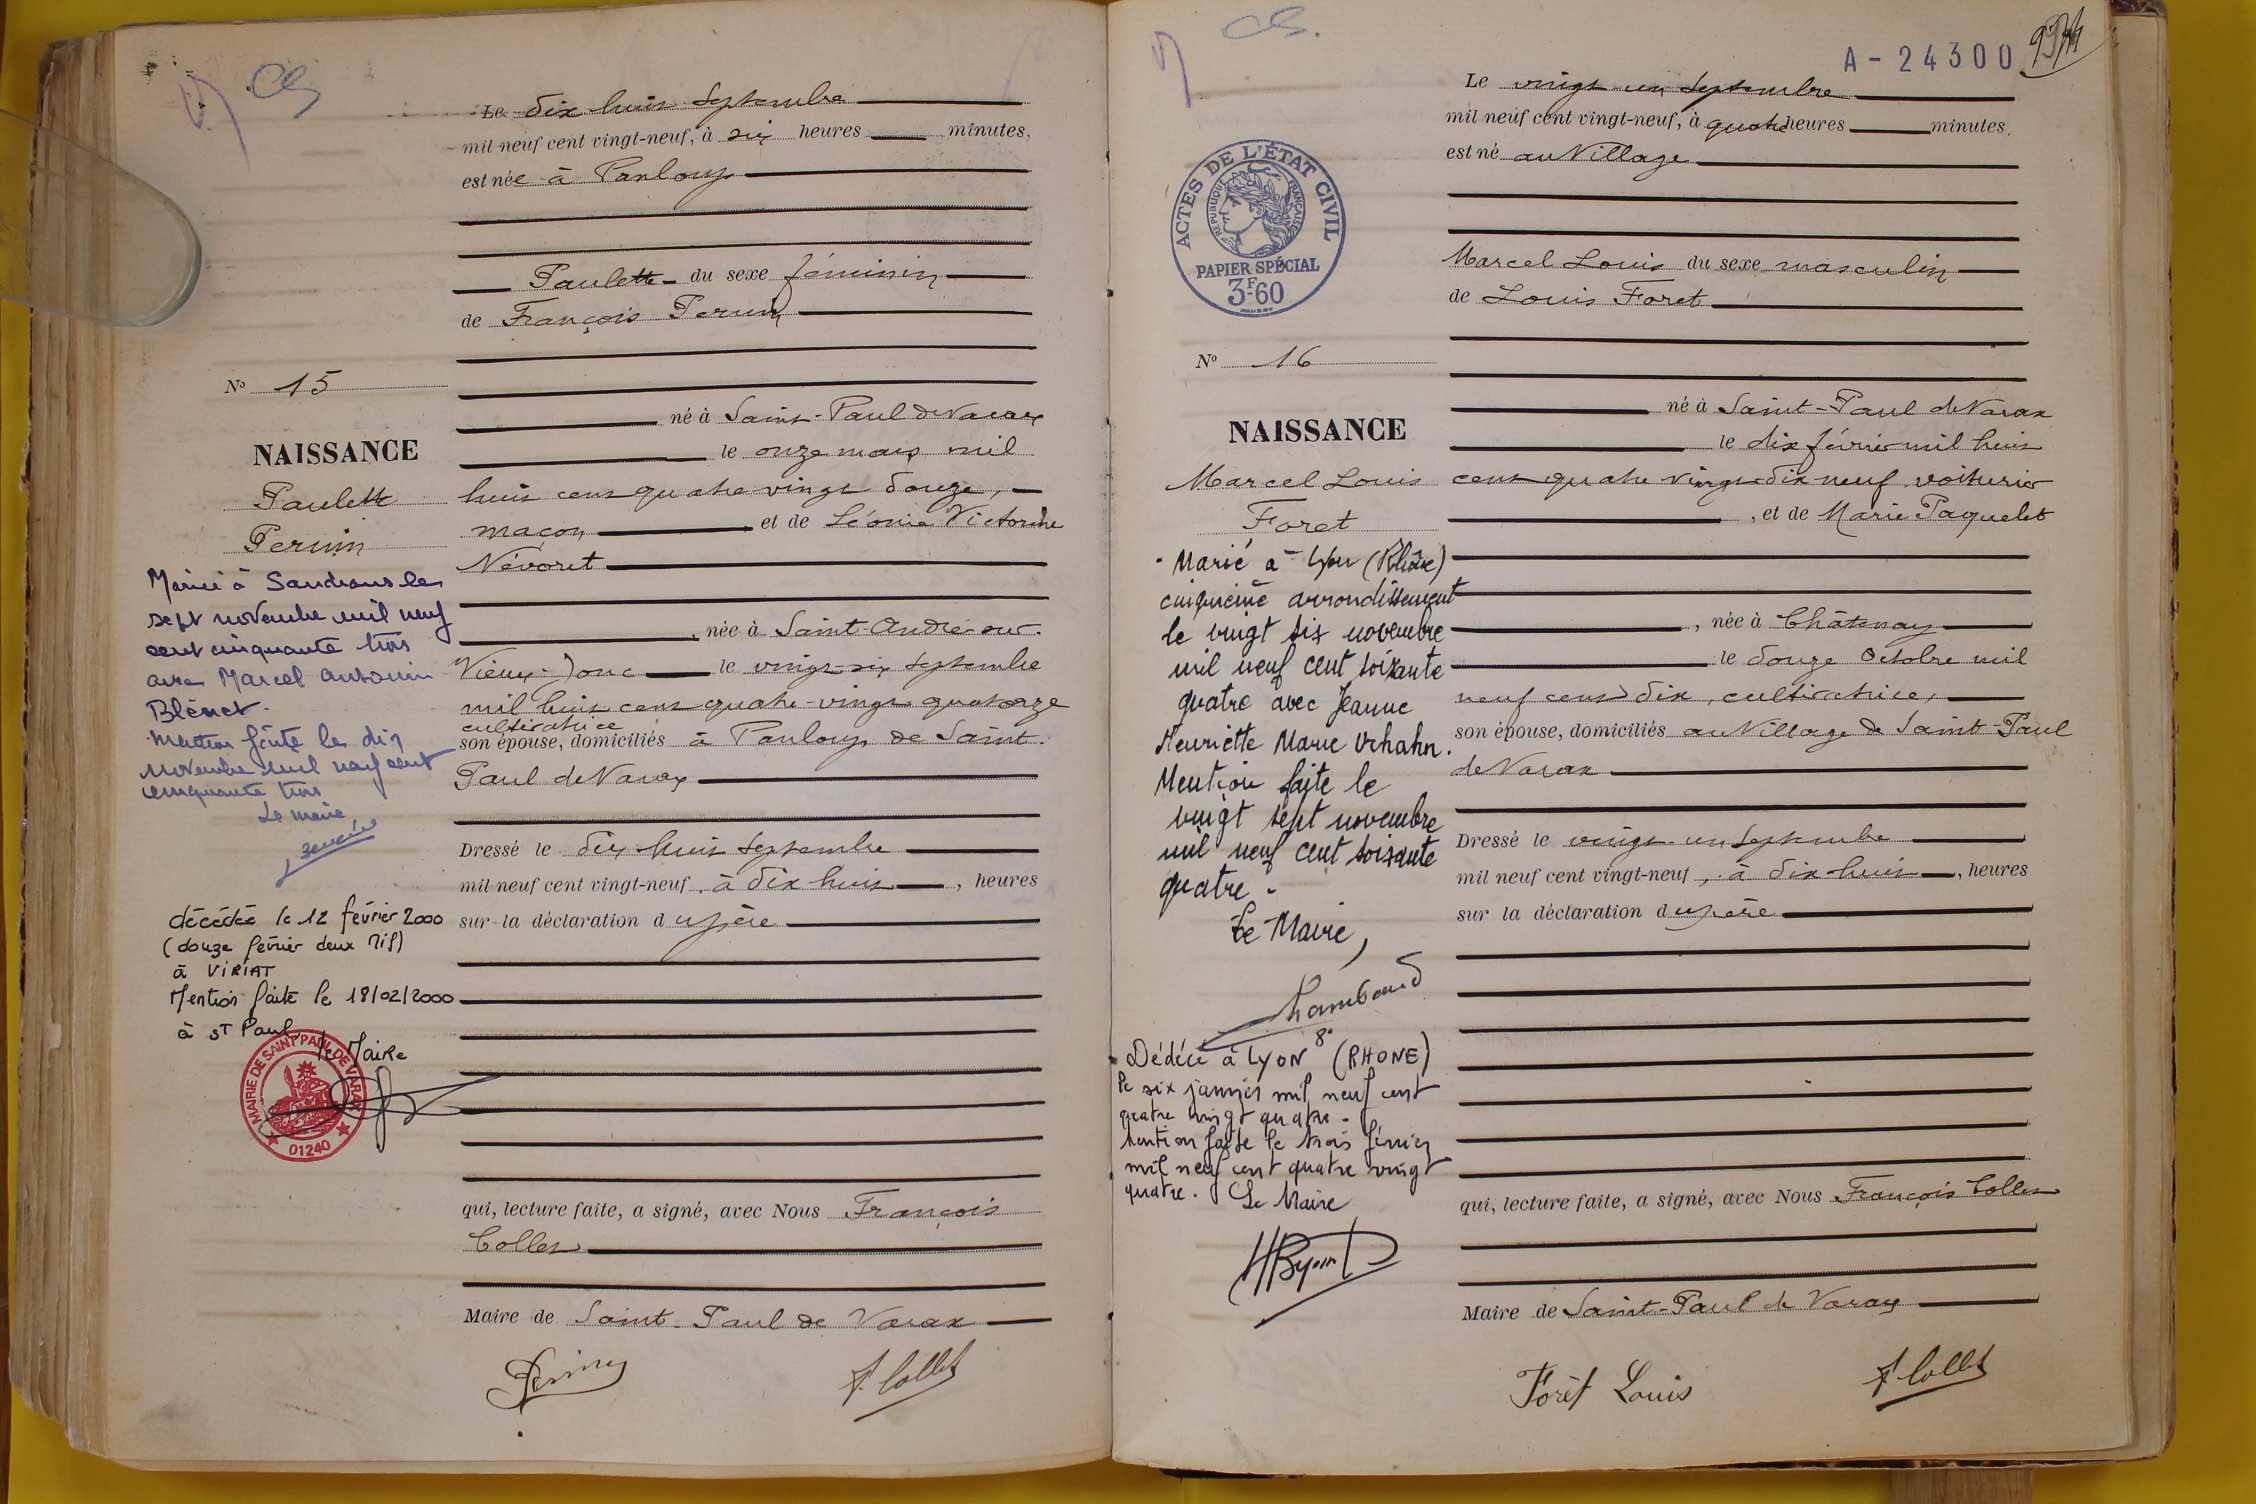 Le dix huit Septembre
mil neuf cent vingt-neuf, à six heures minutes,
est née à Panloup
Paulette du sexe féminin
de François Perrin
N° 15
né à Saint-Paul de Varax
le onze mars mil
NAISSANCE
Paulette
Perrin
huit cent quatre vingt douze,
maçon et de Léonie Victorine
Névoret
, née à Saint-André-sur-
Vieux-Jonc le vingt-six Septembre
mil huit cent quatre-vingt quatorze
cultivatrice
son épouse, domiciliés à Panloup de Saint-
Paul de Varax
Dressé le dix-huit Septembre
mil neuf cent vingt-neuf, à dix huit, heures
sur la déclaration du père
Mariée à Sandrans le
sept novembre mil neuf
cent cinquante trois
avec Marcel Antonin
Blénet.
Mention faite le dix
novembre mil neuf cent
cinquante trois
Le maire,
décédée le 12 février 2000
(douze février deux mil)
à VIRIAT
Mention faite le 18/02/2000
à ST Paul,
le Maire
MAIRIE DE SAINT PAUL DE VARAX
01240
qui, lecture faite, a signé, avec Nous François
Collet
Maire de Saint-Paul de Varax
Perrin
F. Collet
A-24300
Le vingt-un Septembre
mil neuf cent vingt-neuf, à quatre heures minutes.
est né au Village
ACTES DE L'ÉTAT CIVIL
RÉPUBLIQUE FRANÇAISE
PAPIER SPÉCIAL
3F60
Marcel Louis du sexe masculin
de Louis Foret
N° 16
né à Saint-Paul de Varax
le dix février mil huit
NAISSANCE
Marcel Louis
Foret
cent quatre vingt dix neuf voiturier
, et de Marie Paquelet
, née à Châtenay
le douze Octobre mil
neuf cent dix, cultivatrice,
son épouse, domiciliés au Village de Saint-Paul
de Varax
Dressé le vingt-un Septembre
mil neuf cent vingt-neuf, à dix-huit, heures
sur la déclaration du père
Marié à Lyon (Rhône)
cinquième arrondissement
le vingt six novembre
mil neuf cent soixante
quatre avec Jeanne
Henriette Marie Vrhahn.
Mention faite le
vingt sept novembre
mil neuf cent soixante
quatre.
Le Maire,
Chambaud
Dédécé à LYON 8° (RHONE)
le six janvier mil neuf cent
quatre vingt quatre.
Mention faite le trois février
mil neuf cent quatre vingt
quatre. Le Maire
qui, lecture faite, a signé, avec Nous François Collet
Maire de Saint-Paul de Varax
Forêt Louis
F. Collet